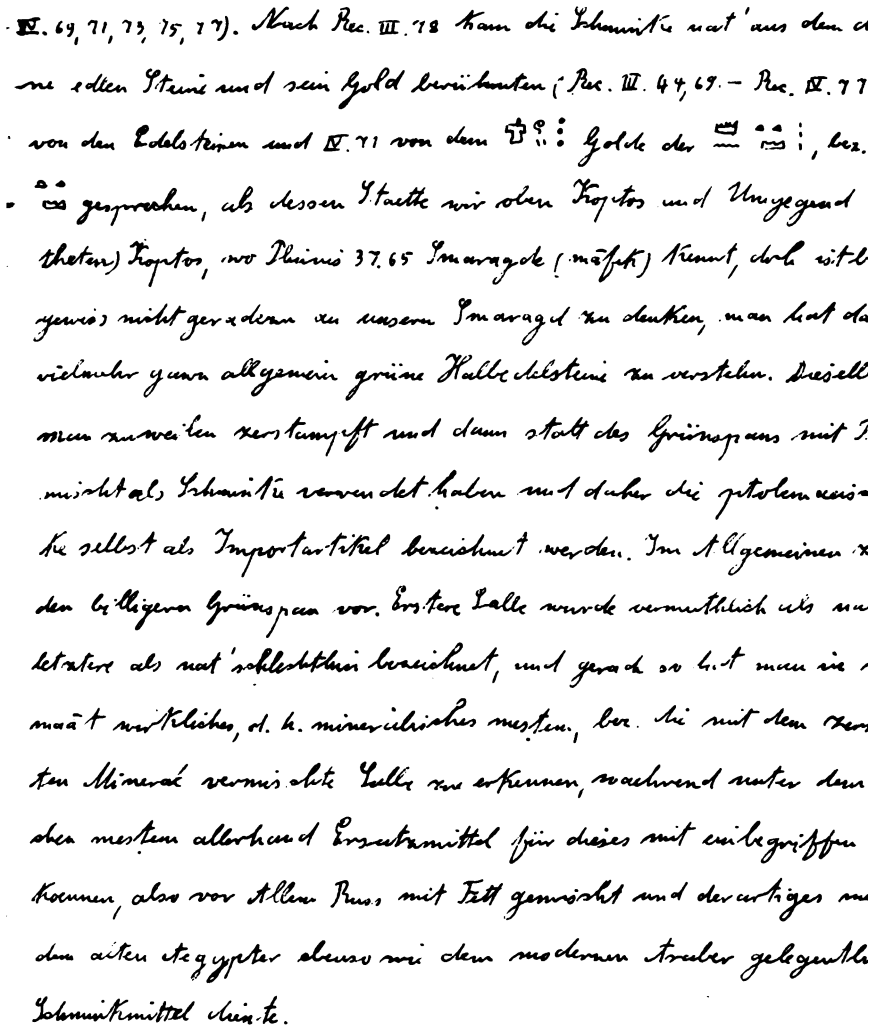 IV. 69, 71, 73, 75, 77). Nach Rec. III. 78 kam die Schminke nat' aus dem
ne edlen Steine und sein Gold berühmten; Rec. III. 44, 69. – Rec. IV. 77
von den Edelsteinen und IV. 71 von dem Golde der , bez.
gesprochen, als dessen Staette wir oben Koptos und Umgegend
theten) Koptos, wo Plinius 37.65 Smaragde (māfek) kennt, doch ist
gewiss nicht geradezu an unsern Smaragd zu denken, man hat
vielmehr ganz allgemein grüne Halbedelsteine zu verstehn.
man zuweilen zerstampft und dann statt des Grünspans mit
mischt als Schminke verwendet haben und daher die
ke selbst als Importartikel bezeichnet werden. Im Allgemeinen
den billigern Grünspan vor. Erstere Salbe wurde vermuthlich als
letztere als nat' schlechthin bezeichnet, und gerade so hat man in
maāt wirkliches, d. h. mineralisches mestem, bez. die mit dem
ten Mineral vermischte Salbe zu erkennen, waehrend unter dem
chen mestem allerhand Ersatzmittel für dieses mit einbegriffen
koennen, also vor Allem Russ mit Fett gemischt und derartiges
dem alten Aegypter ebenso wie dem modernen Araber
Schminkmittel diente.